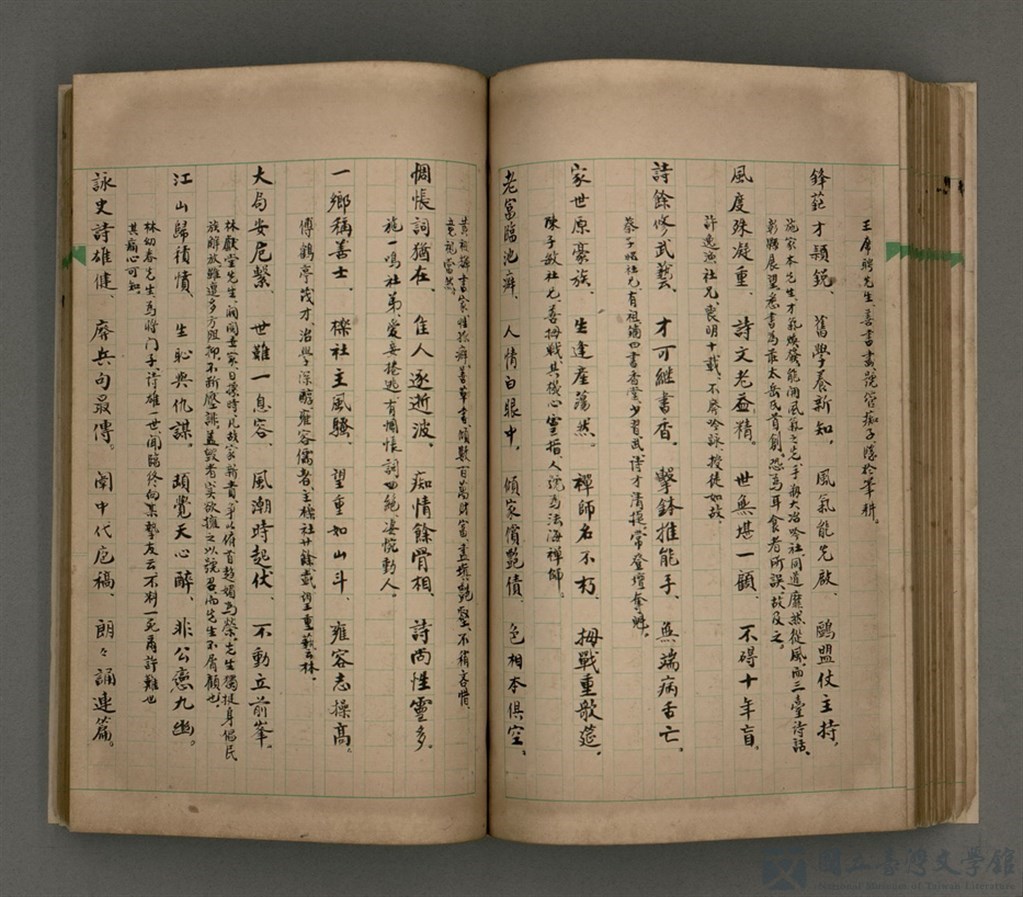 王席聘先生、善書畫、號管痴子、隱於筆耕。
鋒菰才穎銳、舊學養新知、風氣能先啟、鷗盟仗主持、
施家本先生、才氣煥發、能開風氣之先、手創大冶吟社、同道靡然從風、而三臺詩話、
彰縣展望悉書為最太岳民首創、恐為耳食者所誤、故及之。
風度殊凝重、詩文老益精。世無堪一顧、不碍十年盲。
許逸漁社兄、喪明十載、不廢吟詠、授徒如故。
詩餘修武藝、才可繼書香。擊鉢推能手、無端病舌亡。
蔡子昭社兄、有祖鏑四書香堂、少習武、詩才清捷、常登壇奪魁。
家世原豪族、生逢產蕩然。禪師名不朽、拇戰重歌筵。
陳子敏社兄、善拇戰、其機心靈指、人沈為法海禪師。
老當臨池癖、人情白眼中。傾家償艷債、色相本俱空。
黃 書家 癖、善草書、傾數百萬財富、盡填艷壑、不稍吝惜、
竟視當然。
惆悵詞猶在、佳人逐逝波。痴情餘骨相、詩尚性靈多。
施一鳴社弟、愛妾捲逃、有惆悵詞四絕、淒惋動人。
一鄉稱善士、櫟社主風騷。望重如山斗、雍容志操高。
傅鶴亭茂才、治學深醇、雍容儒者、主櫟社廿餘載、望重藝林。
大局安危繫、世難一息容。風潮時起伏、不動立前峯。
林獻堂先生、開國士家、日據時、凡故家新貴、率以俯首趨媚為榮、先生獨挺身倡民
族解放、雖遭多方阻抑、不斷壓謀、蓋毀者實欲擁之以號召、而先生不屑顧也、
江山歸積憤、生恥與仇謀。頭覺天心醉、非公戀九幽。
林幼春先生、為將門子、詩雄一世、聞臨終向某摯友云不料一死爾許難也
其痛心可知。
詠史詩雄健、廢兵句最傳。閣中代危稿、朗々誦連篇。
國立臺灣文學館
National Museum of Taiwan Literature